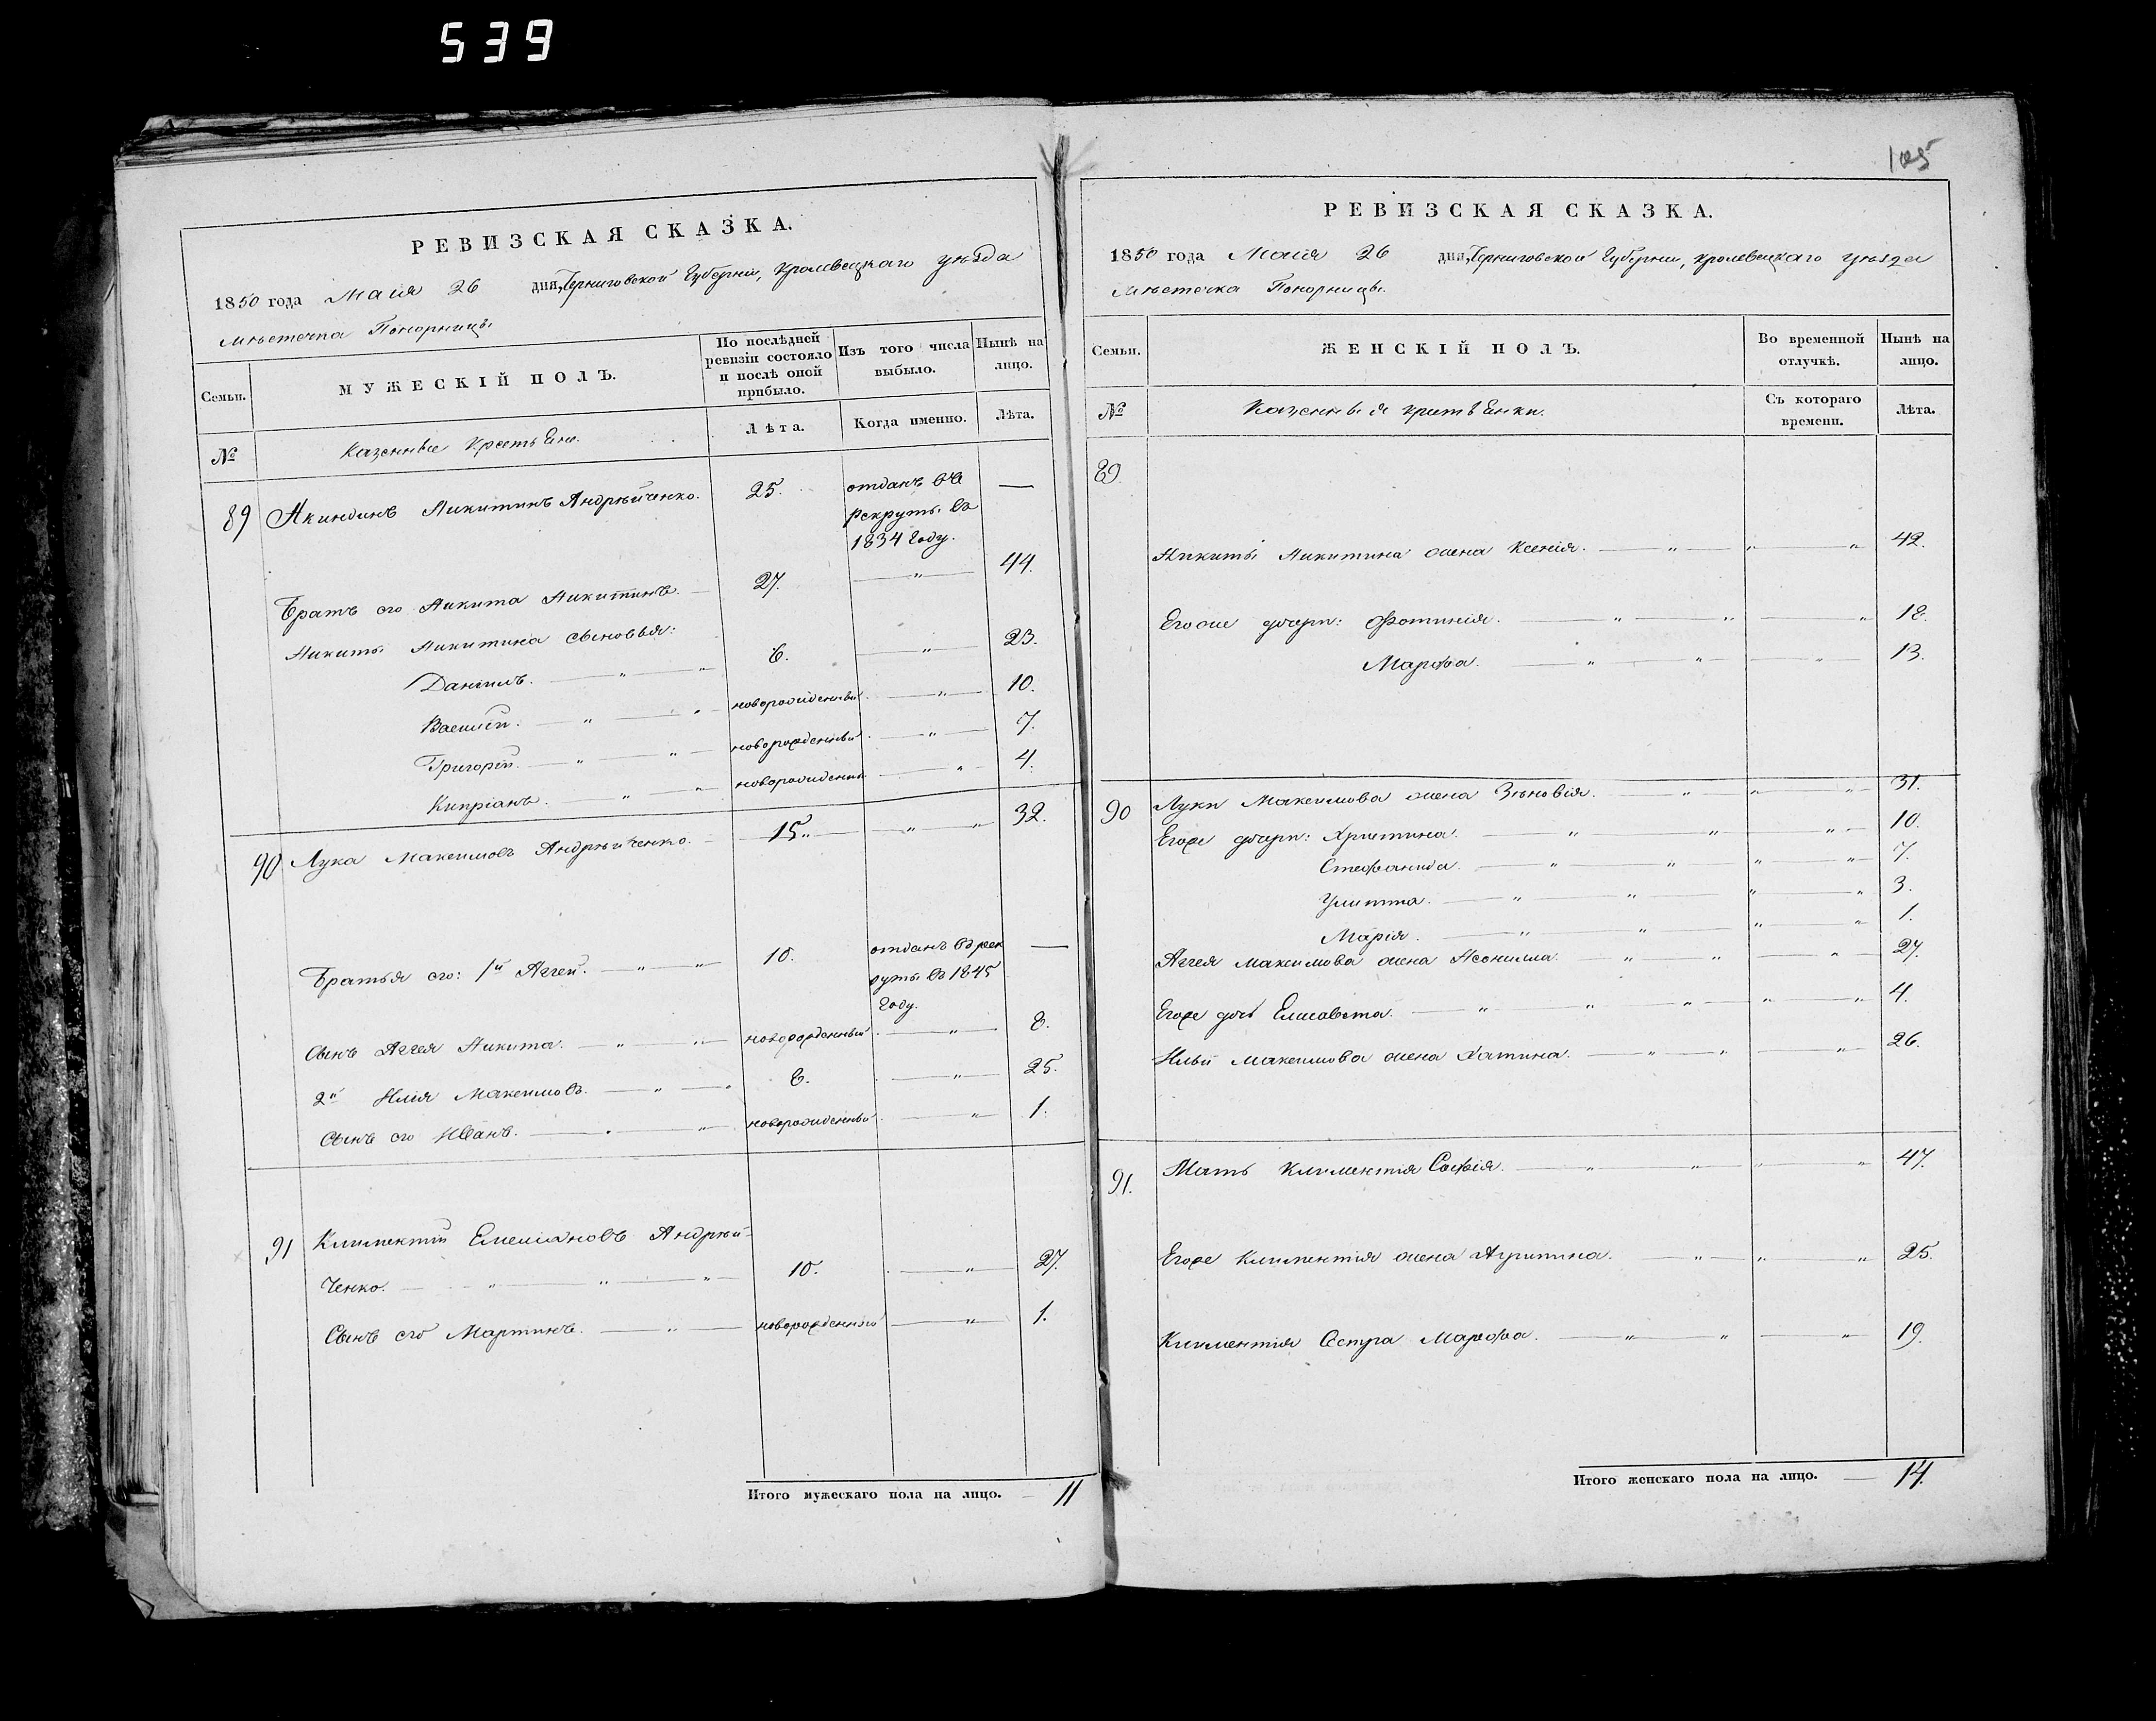 539
РЕВИЗСКАЯ СКАЗКА.
1850 года Маія 26 дня, Черниговской Губерніи, Кролевецкаго уѣзда
мѣстечка Понорницы
Семьи.
МУЖЕСКІЙ ПОЛЪ.
По послѣдней ревизіи состояло и послѣ оной прибыло.
Изъ того числа выбыло.
Нынѣ на лицо.
№
Казенные Крестьяне.
Лѣта.
Когда именно.
Лѣта.
89 Акиндинъ Никитинъ Андрѣйченко. 25. отданъ въ —
рекруты въ
1834 году.
Братъ его Никита Никитинъ. — 27. — „ — 44.
Никиты Никитина сыновья:
Даніилъ. — „ — „ 6. — „ — 23.
Василій. — „ — „ — новорожденный. — „ — 10.
Григорій. — „ — „ — новорожденный. — „ — 7.
Кипріанъ. — „ — „ — новорожденный. — „ — 4.
90 Лука Максимовъ Андрѣйченко. — 15 „ — „ — „ 32.
Братья его: 1й Аггей. — „ — „ 10. отданъ въ рек —
руты въ 1845
году.
Сынъ Аггея Никита. — „ — „ — новорожденный. — „ — 8.
2й Илія Максимовъ. — „ — „ 6. — „ — 25.
Сынъ его Иванъ. — „ — новорожденный. — „ — 1.
91 Климентій Емеліановъ Андрѣй-
ченко. — „ — „ — „ — 10. — „ — 27.
Сынъ его Мартинъ. — „ — новорожденный — „ — 1.
Итого мужескаго пола на лицо. — 11
105
РЕВИЗСКАЯ СКАЗКА.
1850 года Маія 26 дня, Черниговской Губерніи, Кролевецкаго уѣзда
мѣстечка Понорницы.
Семьи.
ЖЕНСКІЙ ПОЛЪ.
Во временной отлучкѣ.
Нынѣ на лицо.
№
Казенныя крестьянки.
Съ котораго времени.
Лѣта.
89.
Никиты Никитина жена Ксенія. — „ — „ — „ 42.
Его же дочери: Фотинія. — „ — „ — „ 18.
Марфа. — „ — „ — „ — 13.
90 Луки Максимова жена Зѣновія. — „ — „ — „ 31.
Егоже дочери: Христина. — „ — „ — „ — 10.
Стефанида. — „ — „ — „ — „ 7.
Улитта. — „ — „ — „ — „ 3.
Марія. — „ — „ — „ — „ 1.
Аггея Максимова жена — „ — „ — „ — 27.
Егоже дочь Елисавета. — „ — „ — „ — „ — „ 4.
Ильи Максимова жена — „ — „ — „ — 26.
91. Мать Климентія Софія. — „ — „ — „ — „ 47.
Егоже Климентія жена Агрипина. — „ — „ — „ 25.
Климентія Сестра Марфа. — „ — „ — „ — 19.
Итого женскаго пола на лицо. — 14.